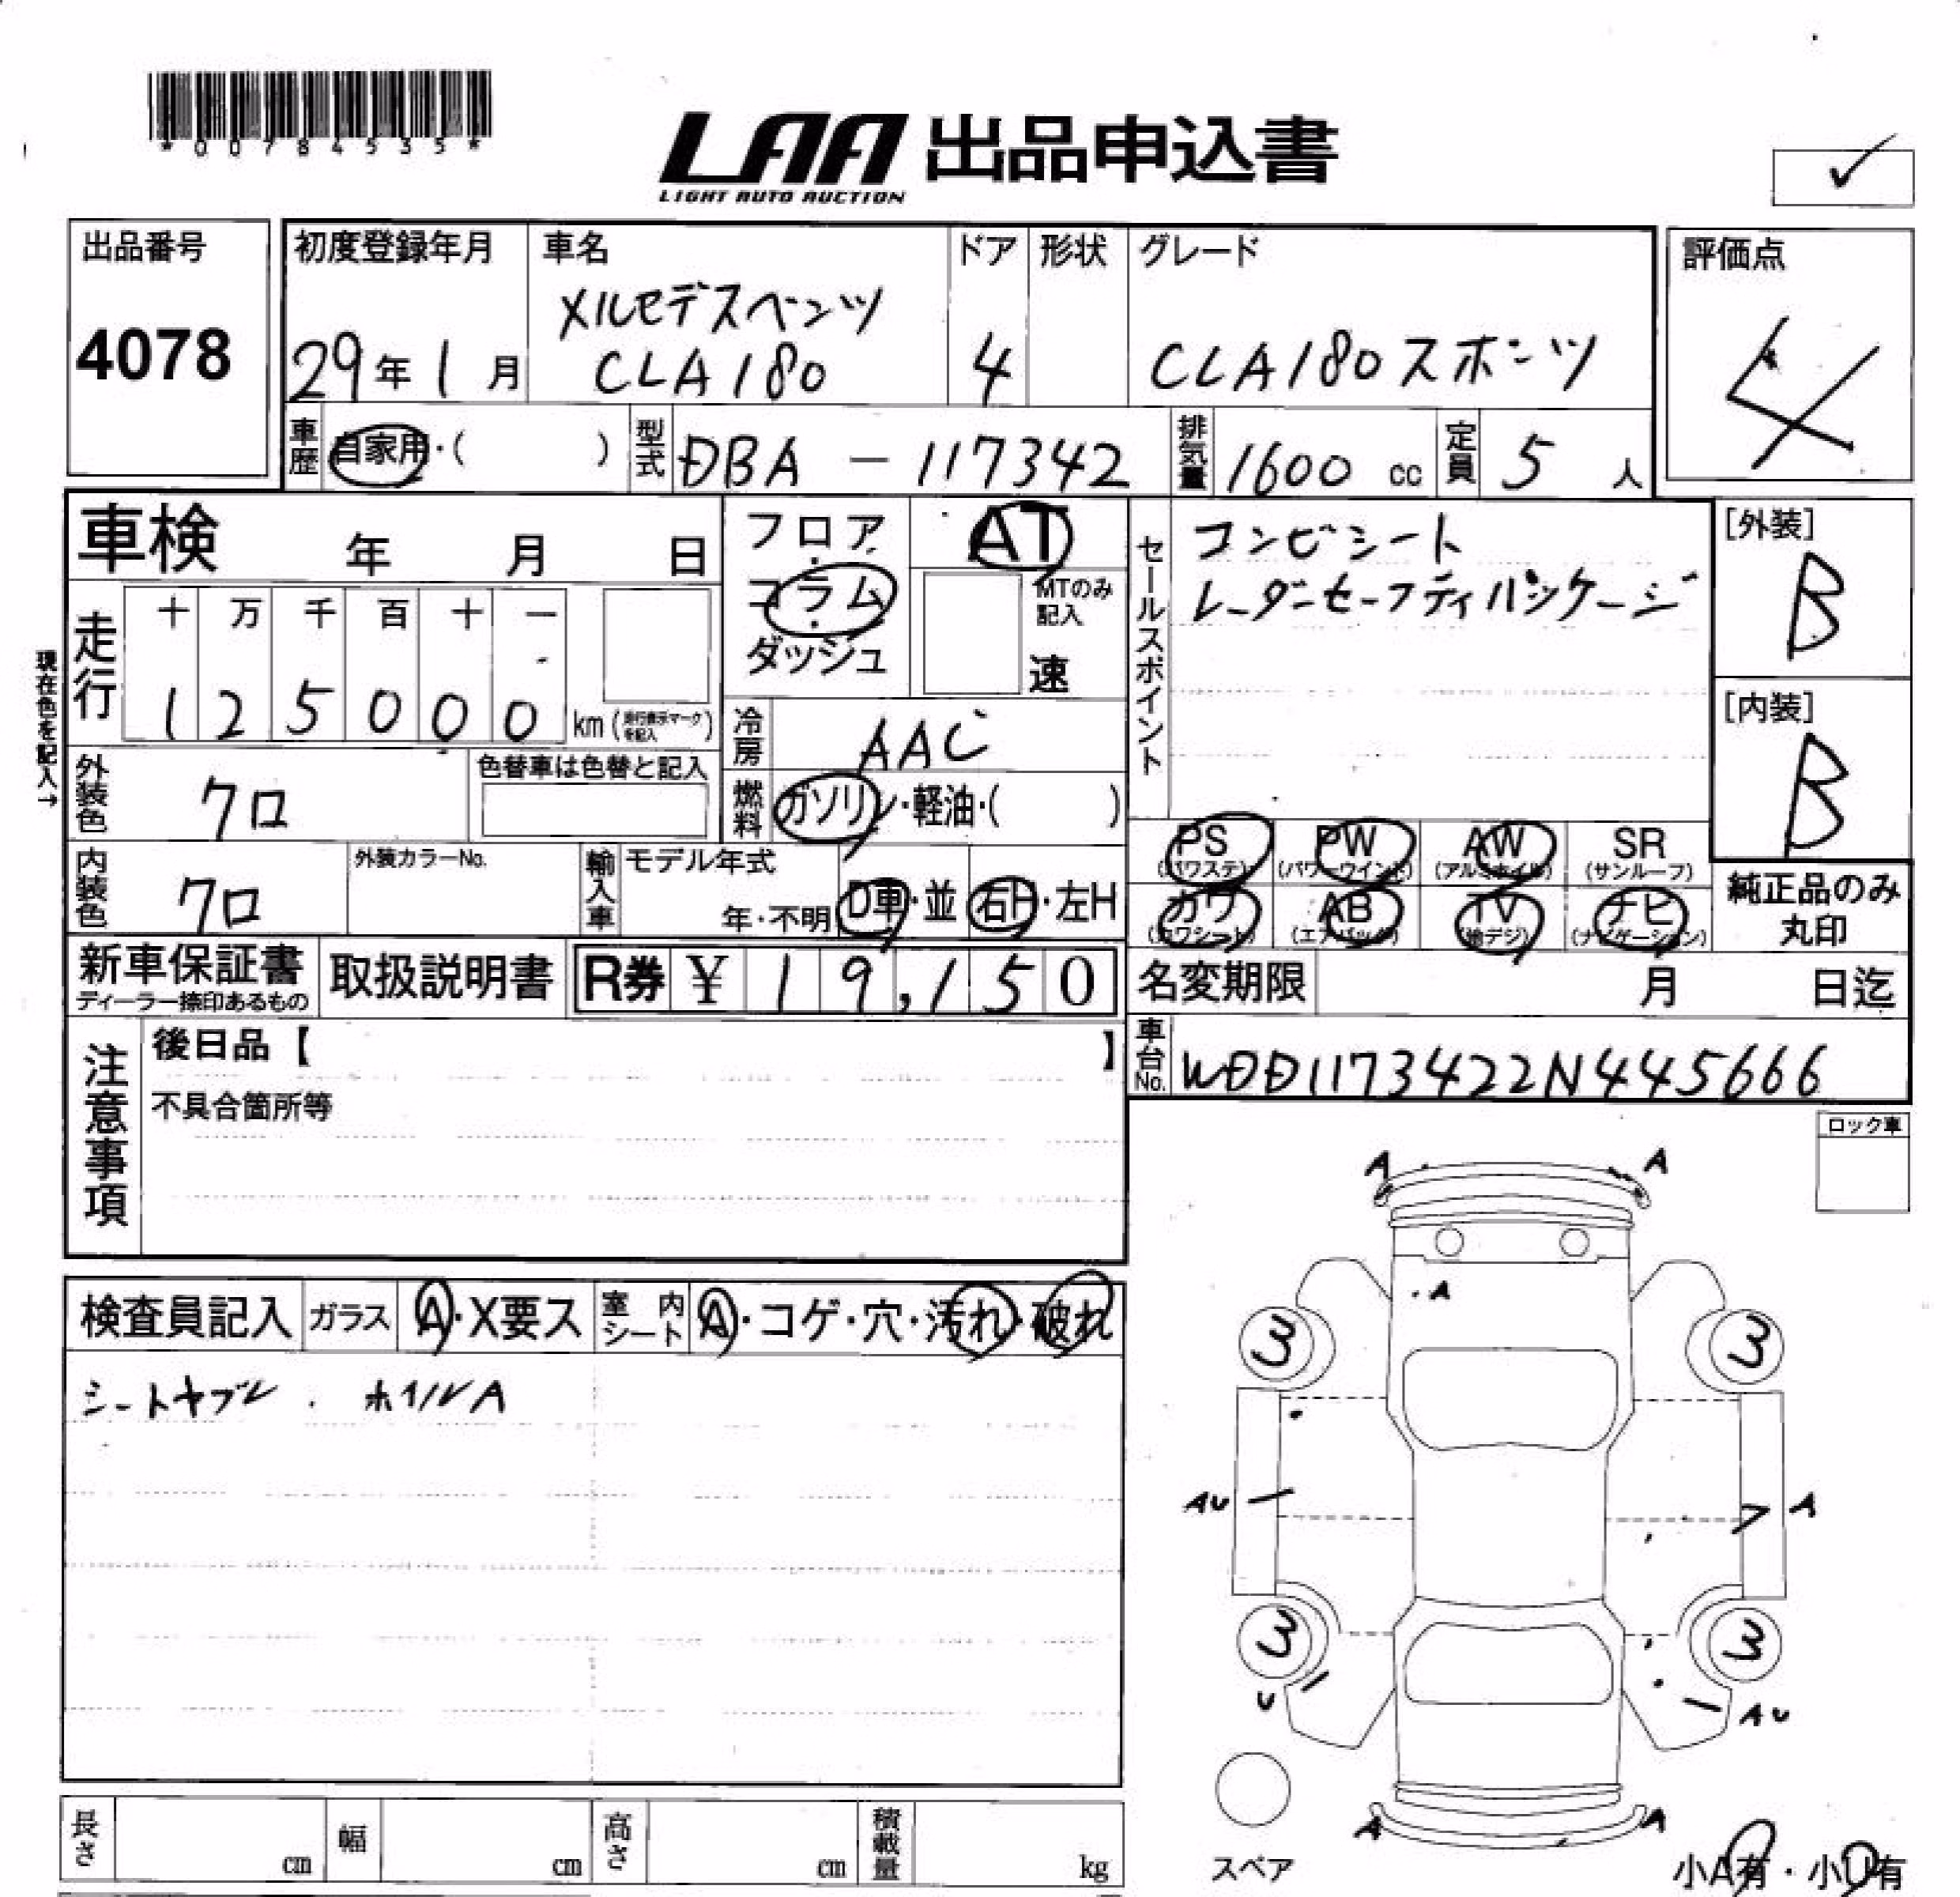 *00784535*
LAA 出品申込書
LIGHT AUTO AUCTION
✓
出品番号
4078
初度登録年月
29年1月
車名
メルセデスベンツ
CLA180
ドア
4
形状
グレード
CLA180スポーツ
評価点
4
車歴 自家用・( )
型式 DBA - 117342
排気量 1600 cc
定員 5 人
車検 年 月 日
フロア・コラム・ダッシュ
AT
MTのみ記入
速
セールスポイント
コンビシート
レーダーセーフティパッケージ
[外装]
B
[内装]
B
現在色を記入→
走行
十 万 千 百 十 一
1 2 5 0 0 0 km (走行表示マークを記入)
冷房 AAC
燃料 ガソリン・軽油・( )
外装色 クロ
色替車は色替と記入
内装色 クロ
外装カラーNo.
輸入車
モデル年式
年・不明 D車・並 右H・左H
PS (パワステ) PW (パワーウインド) AW (アルミホイル) SR (サンルーフ)
カワ (カワシート) AB (エアバック) TV (地デジ) ナビ (ナビゲーション)
純正品のみ丸印
新車保証書
ディーラー捺印あるもの
取扱説明書
R券 ¥ 19,150
名変期限 月 日迄
車台No. WDD1173422N445666
注意事項
後日品【 】
不具合箇所等
ロック車
検査員記入 ガラス A・X要ス 室内シート A・コゲ・穴・汚れ・破れ
シートヤブレ . ホイルA
A A
A
3 3
AU A
3 3
U AU
A A
スペア
小A有・小U有
長さ cm 幅 cm 高さ cm 積載量 kg